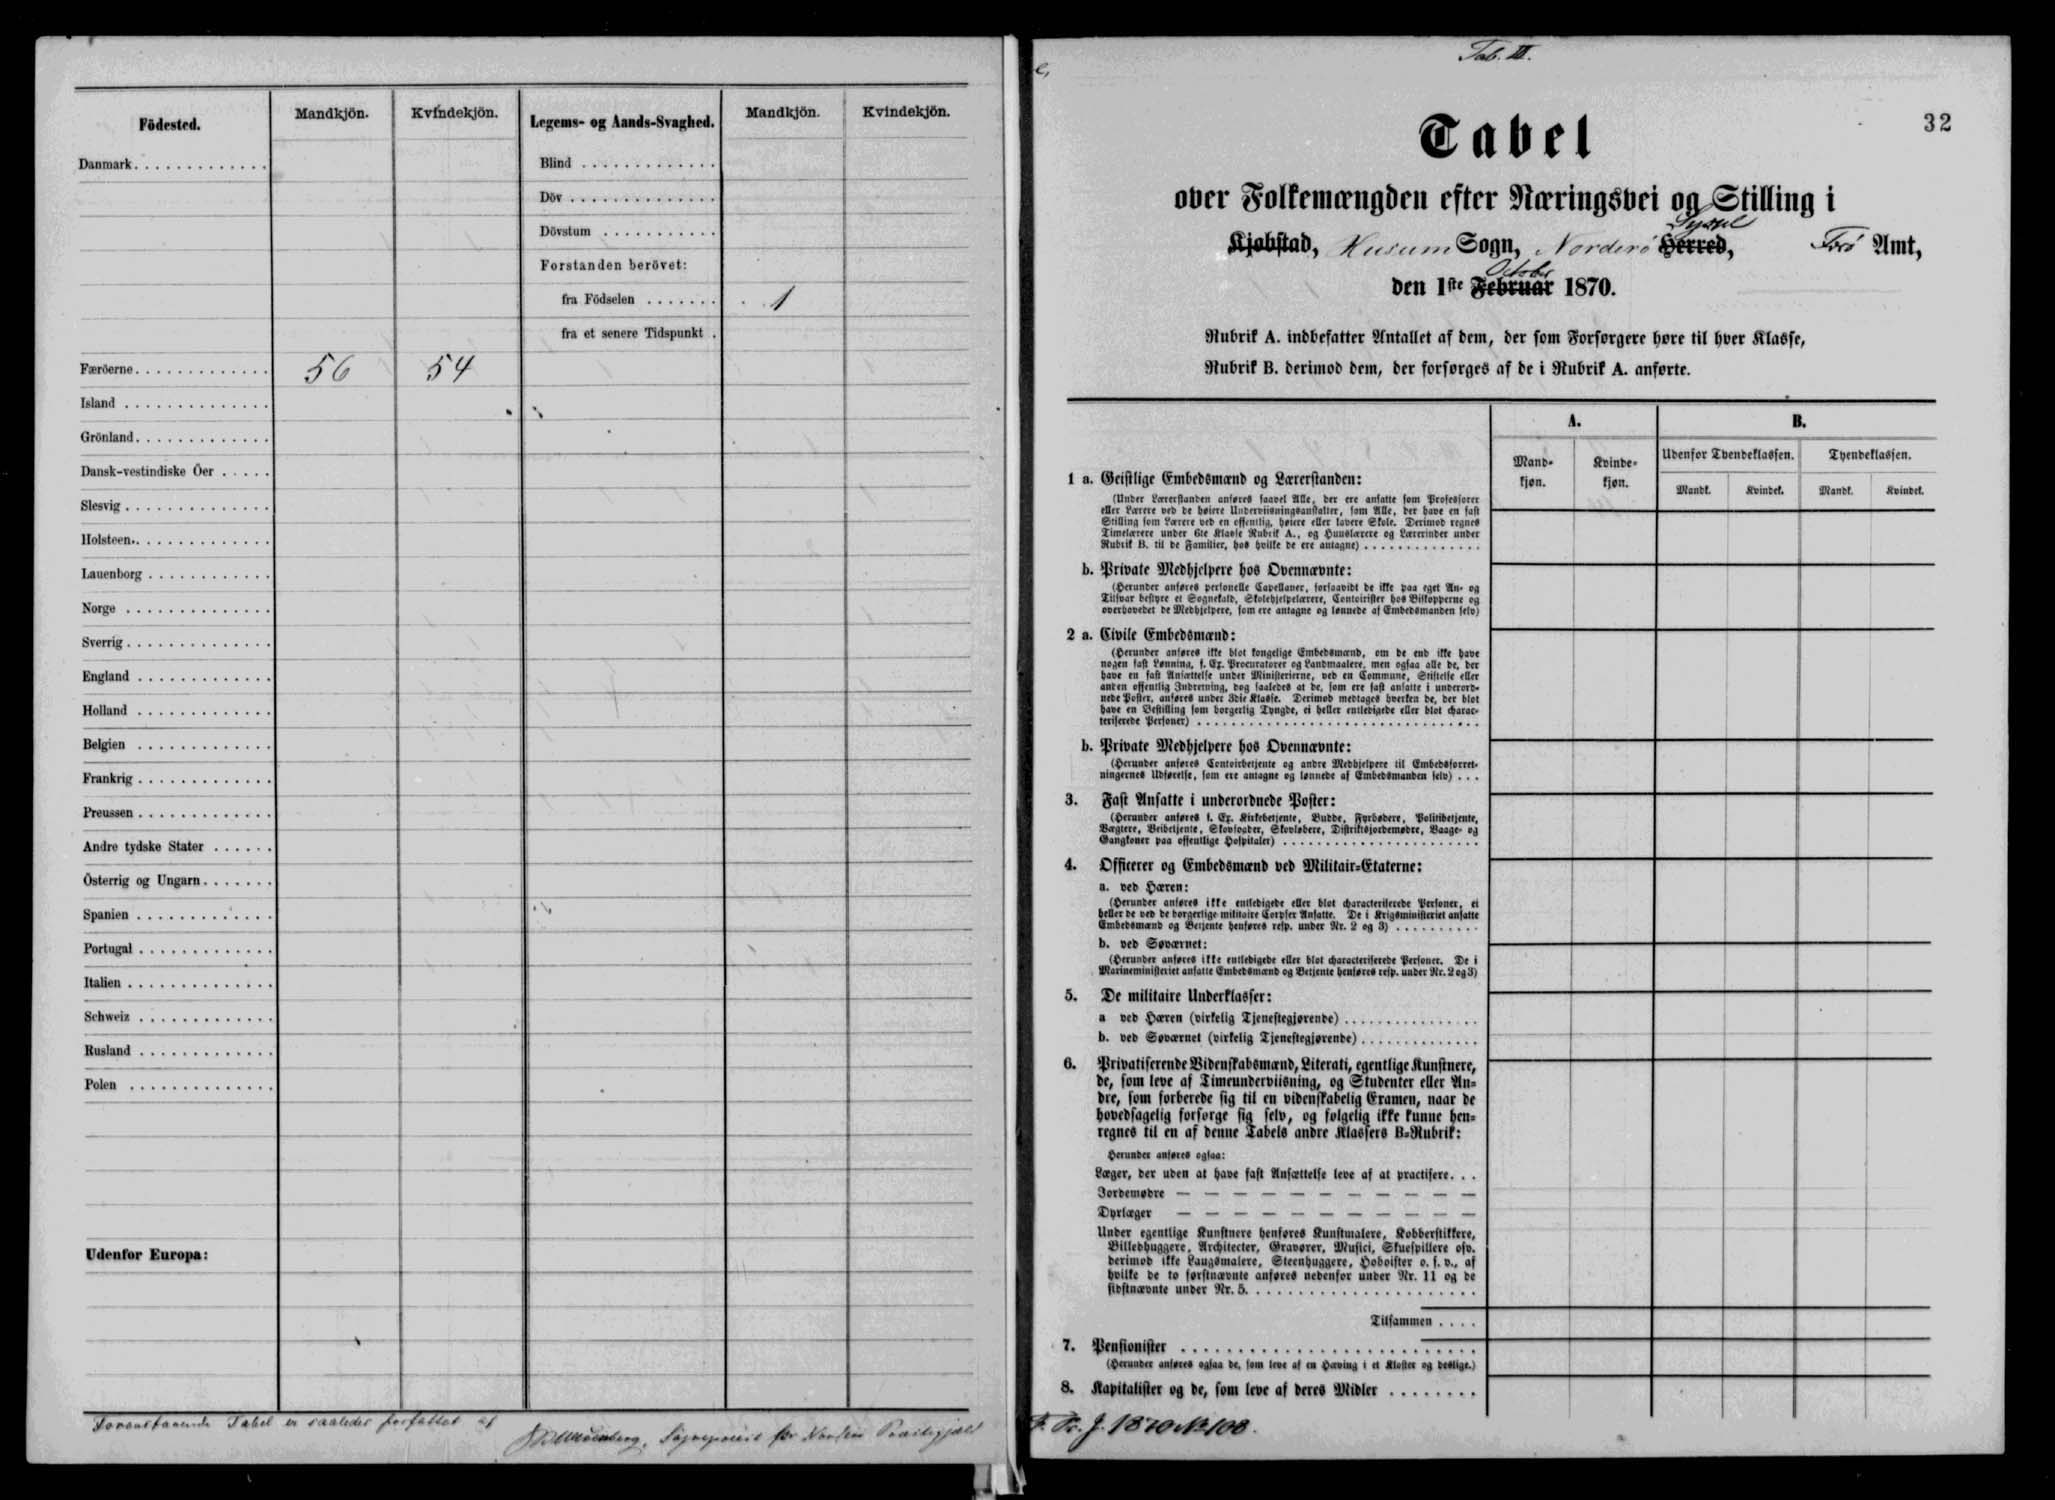 Födested.
Mandkjön.
Kvindekjön.
Legems- og Aands-Svaghed.
Mandkjön.
Kvindekjön.
Danmark
Blind
Döv
Dövstum
Forstanden berövet:
fra Födselen 1
fra et senere Tidspunkt
Færöerne 56 54
Island
Grönland
Dansk-vestindiske Öer
Slesvig
Holsteen
Lauenborg
Norge
Sverrig
England
Holland
Belgien
Frankrig
Preussen
Andre tydske Stater
Österrig og Ungarn
Spanien
Portugal
Italien
Schweiz
Rusland
Polen
Udenfor Europa:
Foranstaaende Tabel er saaledes forfattet af
Sognepræst for Norderø Præstegjæld
Tab. III.
32
Tabel
over Folkemængden efter Næringsvei og Stilling i
Syssel
Kjøbstad, Husum Sogn, Norderø Herred, Færø Amt,
October
den 1ste Februar 1870.
Rubrik A. indbefatter Antallet af dem, der som Forsørgere høre til hver Klasse,
Rubrik B. derimod dem, der forsørges af de i Rubrik A. anførte.
A.
B.
Mand-
kjøn.
Kvinde-
kjøn.
Udenfor Tyendeklassen.
Tyendeklassen.
Mandk.
Kvindek.
Mandk.
Kvindek.
1 a. Geistlige Embedsmænd og Lærerstanden:
(Under Lærerstanden anføres saavel Alle, der ere ansatte som Professorer
eller Lærere ved de høiere Underviisningsanstalter, som Alle, der have en fast
Stilling som Lærere ved en offentlig, høiere eller lavere Skole. Derimod regnes
Timelærere under 6te Klasse Rubrik A., og Huuslærere og Lærerinder under
Rubrik B. til de Familier, hos hvilke de ere antagne)
b. Private Medhjelpere hos Ovennævnte:
(Herunder anføres personelle Capellaner, forsaavidt de ikke paa eget An- og
Tilsvar bestyre et Sognekald, Skolehjelpelærere, Contoirister hos Biskopperne og
overhovedet de Medhjelpere, som ere antagne og lønnede af Embedsmanden selv)
2 a. Civile Embedsmænd:
(Herunder anføres ikke blot kongelige Embedsmænd, om de end ikke have
nogen fast Lønning, f. Ex. Procuratorer og Landmaalere, men ogsaa alle de, der
have en fast Ansættelse under Ministerierne, ved en Commune, Stiftelse eller
anden offentlig Indretning, dog saaledes at de, som ere fast ansatte i underord-
nede Poster, anføres under 3die Klasse. Derimod medtages hverken de, der blot
have en Bestilling som borgerlig Tyngde, ei heller entledigede eller blot charac-
teriserede Personer)
b. Private Medhjelpere hos Ovennævnte:
(Herunder anføres Contoirbetjente og andre Medhjelpere til Embedsforret-
ningernes Udførelse, som ere antagne og lønnede af Embedsmanden selv)
3. Fast Ansatte i underordnede Poster:
(Herunder anføres f. Ex. Kirkebetjente, Budde, Fyrbødere, Politibetjente,
Vægtere, Veibetjente, Skovfogder, Skovløbere, Distriktsjordemødre, Vaage- og
Gangkoner paa offentlige Hospitaler)
4. Officerer og Embedsmænd ved Militair-Etaterne:
a. ved Hæren:
(Herunder anføres ikke entledigede eller blot characteriserede Personer, ei
heller de ved de borgerlige militaire Corpser Ansatte. De i Krigsministeriet ansatte
Embedsmænd og Betjente henføres resp. under Nr. 2 og 3)
b. ved Søværnet:
(Herunder anføres ikke entledigede eller blot characteriserede Personer. De i
Marineministeriet ansatte Embedsmænd og Betjente henføres resp. under Nr. 2 og 3)
5. De militaire Underklasser:
a ved Hæren (virkelig Tjenestegjørende)
b. ved Søværnet (virkelig Tjenestegjørende)
6. Privatiserende Videnskabsmænd, Literati, egentlige Kunstnere,
de, som leve af Timeunderviisning, og Studenter eller An-
dre, som forberede sig til en videnskabelig Examen, naar de
hovedsagelig forsørge sig selv, og følgelig ikke kunne hen-
regnes til en af denne Tabels andre Klassers B-Rubrik:
Herunder anføres ogsaa:
Læger, der uden at have fast Ansættelse leve af at practisere.
Jordemødre — — — — — — — — — — —
Dyrlæger — — — — — — — — — — —
Under egentlige Kunstnere henføres Kunstmalere, Kobberstikkere,
Billedhuggere, Architecter, Gravører, Musici, Skuespillere osv.
derimod ikke Laugsmalere, Steenhuggere, Hoboister o. s. v., af
hvilke de to førstnævnte anføres nedenfor under Nr. 11 og de
sidstnævnte under Nr. 5.
Tilsammen
7. Pensionister
(Herunder anføres ogsaa de, som leve af en Hæving i et Kloster og deslige.)
8. Kapitalister og de, som leve af deres Midler
J. 1870 No 108.